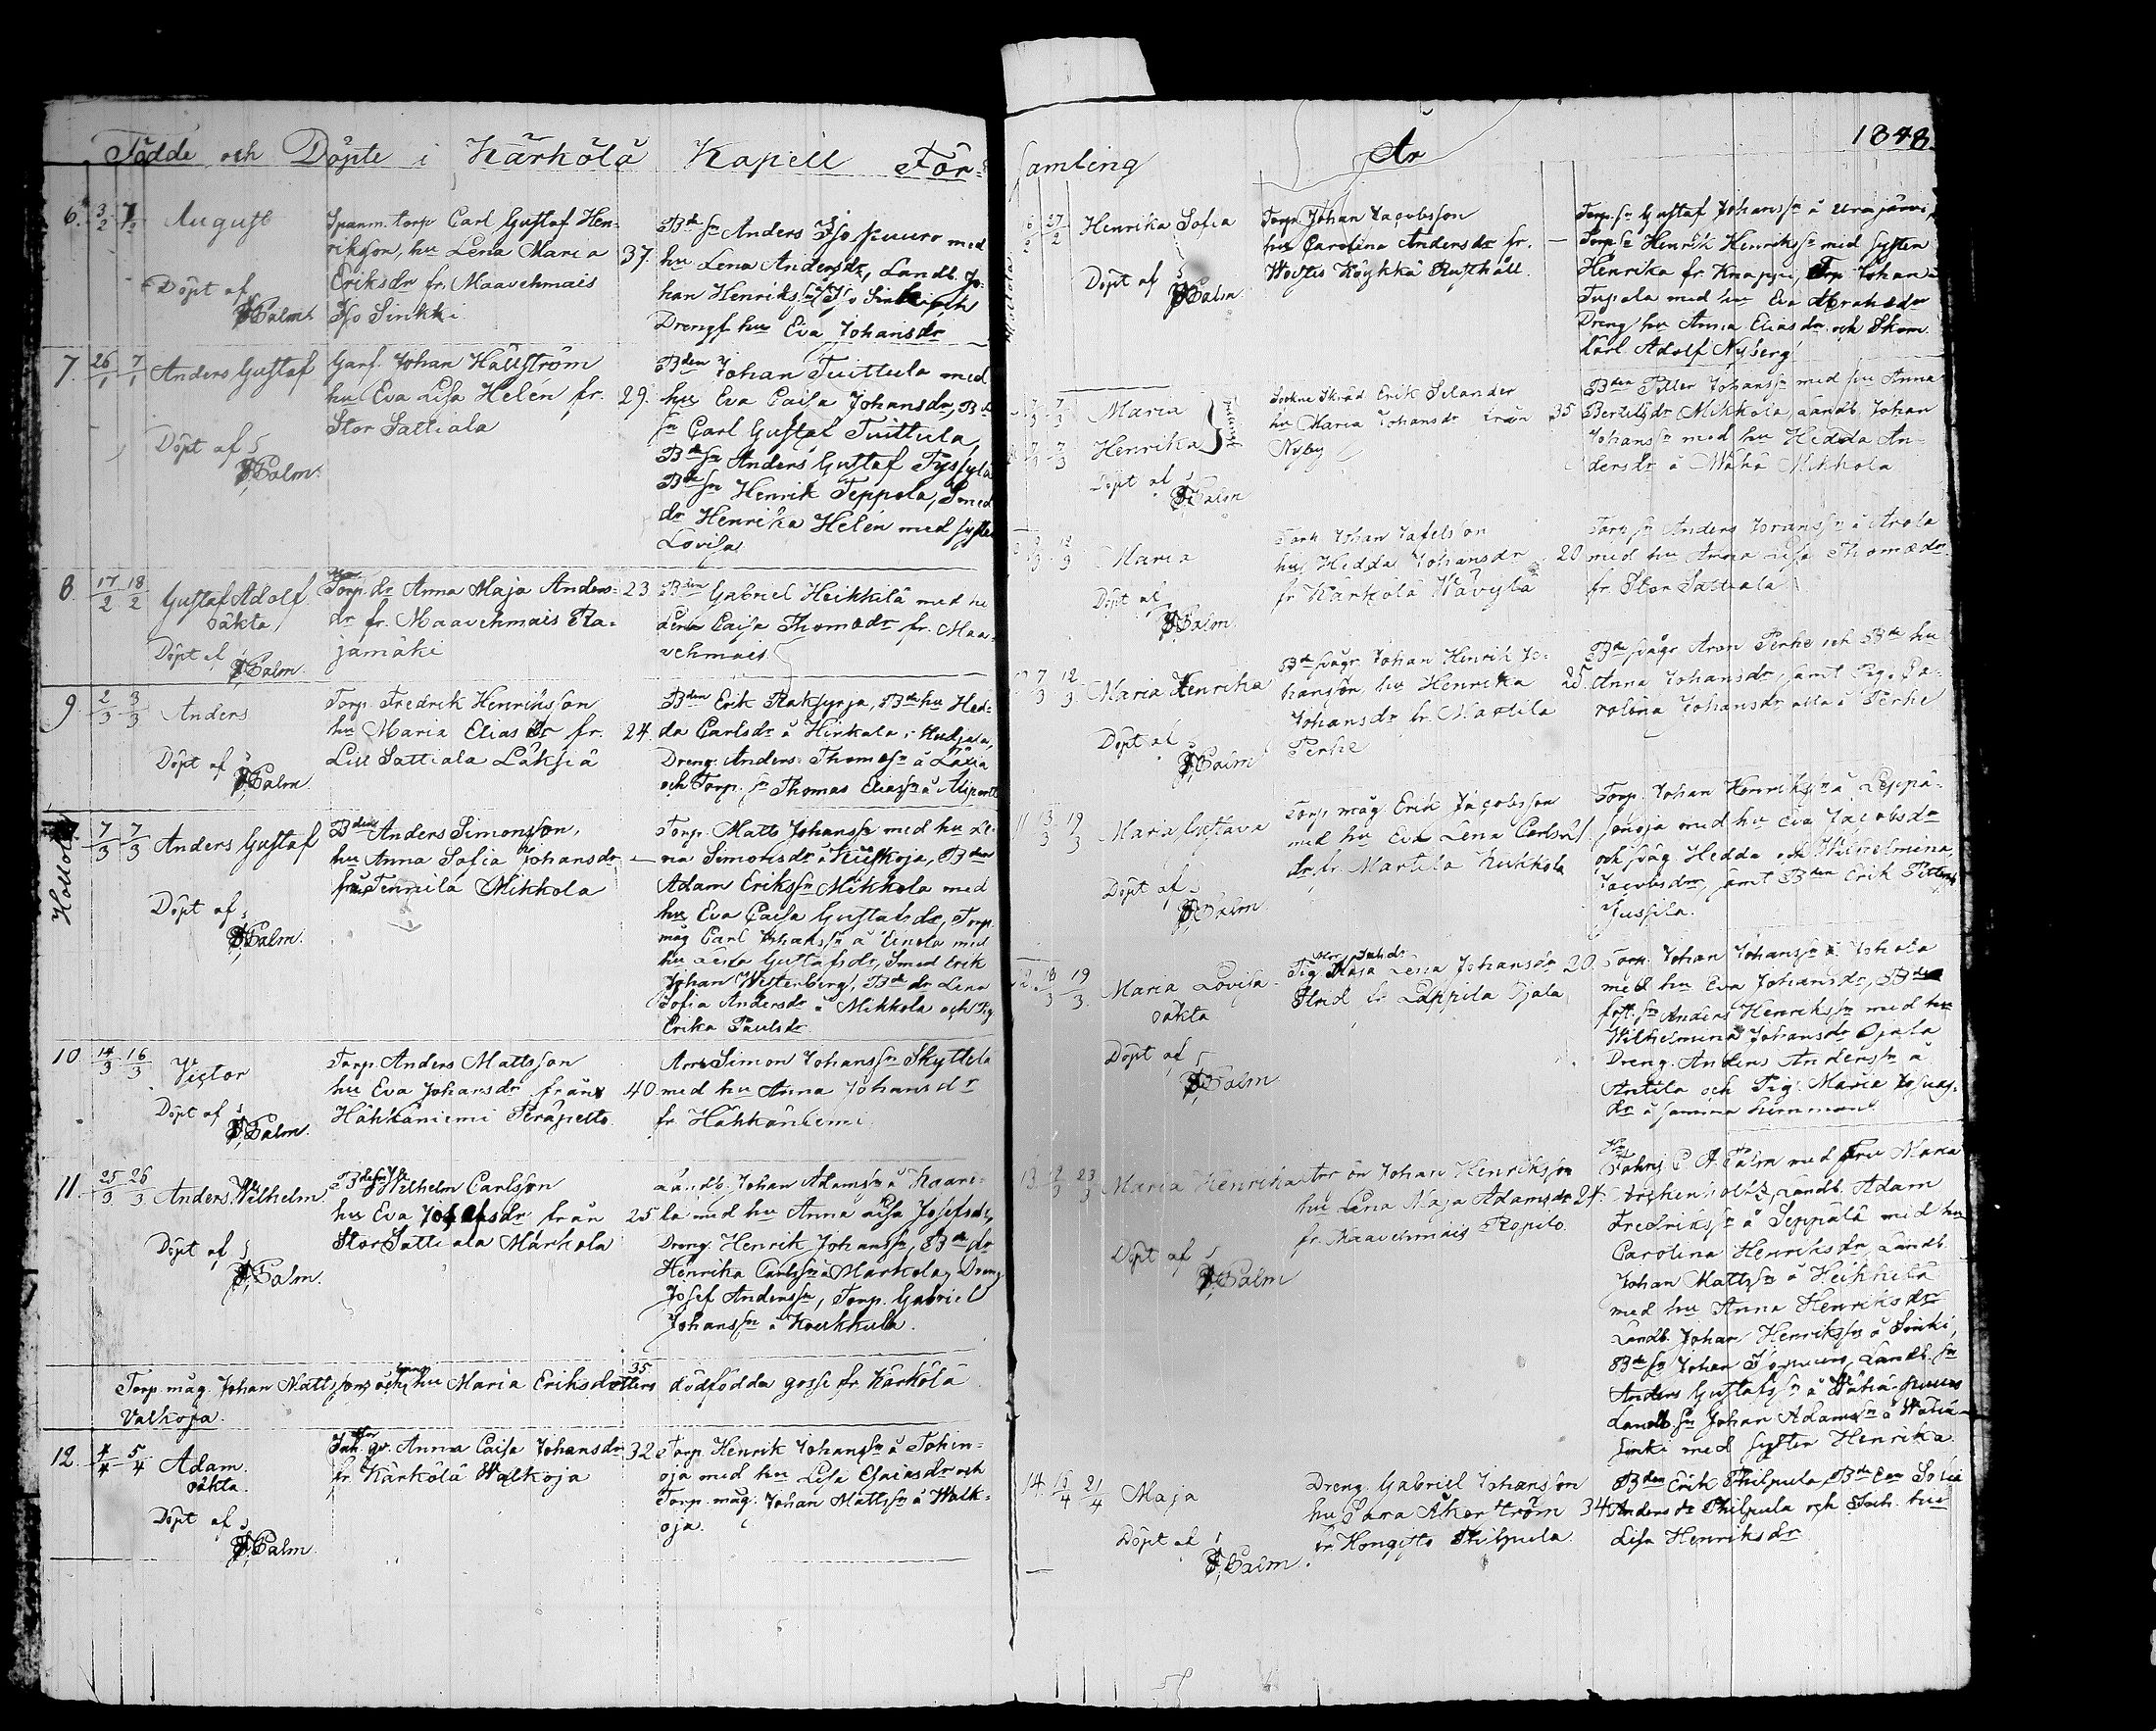 Födde och Döpte i Kärkölä Kapell För-
6. 3/2 7/2 August
Döpt af
Palm.
Spanm. torp Carl Gustaf Hen-
riksson, hu Lena Maria
Eriksdr fr. Maavehmais
Iso Sinkki
37.
Bde sn Anders Iso Puuro med
hu Lena Andersdr, Landb. Jo-
han Henrikssn Iso Sinkki och
Drengs hu Eva Johansdr
7. 26/1 7/1 Anders Gustaf
Döpt af
Palm.
Garf. Johan Hällström
hu Eva Lisa Helén fr.
Stor Sattiala
29.
Bden Johan Tuittula med
hu Eva Caisa Johansdr, Bde
sn Carl Gustaf Tuittula,
Bde sn Anders Gustaf
Bde sn Henrik Teppola, Smed
dr Henrika Helén med syster
Lovisa
8. 17/2 18/2 Gustaf Adolf
oäkta
Döpt af
Palm.
Torp. dr Anna Maja Anders-
dr fr. Maavehmais Ra-
jamäki
23
Bden Gabriel Heikkilä med hu
Lena Caisa Thomædr fr. Maa-
vehmais
9 2/3 3/3 Anders
Döpt af
Palm.
Torp. Fredrik Henriksson
hu Maria Eliasdr fr.
Lill Sattiala Läksiä
24.
Bden Erik Raksyrja, Bde hu Hed-
da Carlsdr å Hirkala i Hudjala,
Dreng. Anders Thomæsn å Läxiä
och Torp. sn Thomas Eliassn å
Hollola
7/3 7/3 Anders Gustaf
Döpt af
Palm.
Bden Anders Simonsson,
hu Anna Sofia Johansdr
från Tennilä Mikkola
—
Torp. Matts Johanssn med hu Le-
na Simonsdr å Bden
Adam Erikssn Mikkola med
hu Eva Caisa Gustafsdr, Torp.
måg Carl Johanssn å Einola med
hu Lena Gustafsdr, Smed Erik
Johan Westerberg, Bde dr Lena
Sofia Andersdr å Mikkola och Pig.
Erika Paulsdr.
10 14/3 16/3 Victor
Döpt af
Palm.
Torp. Anders Mattsson
hu Eva Johansdr från
Hähkäniemi Peräpelto
40
Arr. Simon Johanssn Skyttelä
med hu Anna Johansdr
fr Hähkäniemi
11. 25/3 26/3 Anders Wilhelm
Döpt af
Palm.
Bde sn Wilhelm Carlsson
hu Eva Josefsdr från
Stor Sattiala Markola
25
Landb. Johan Adamssn å Kaare-
la med hu Anna Lisa Josefsdr,
Dreng. Henrik Johanssn, Bde dr
Henrika Carlsdr å Markola, Dreng
Josef Anderssn, Torp. Gabriel
Johanssn å Koukkula.
Torp måg Johan Mattssons och hu Maria Eriksdotters 35 dödfödda gosse fr Kärkölä
Valkoja.
12. 4/4 5/4 Adam.
oäkta.
Döpt af
Palm.
Anna Caisa Johansdr
fr Kärkölä Walkoja
32
Torp. Henrik Johanssn å Tohin-
oja med hu Lisa Esaiasdr och
Torp. måg. Johan Mattssn å Walk-
oja.
samling År 1848.
6/2 27/2 Henrika Sofia
Döpt af
Palm
Torp Johan Jacobsson
hu Carolina Andersdr fr.
Wovtis Köykkä Rusthåll.
—
Torp. sn Gustaf Johanssn å Urajärvi,
Torp sn Henrik Henrikssn med syster
Henrika fr. Knappi, Torp Johan å
Tupala med hu Eva Abrahædr
Dreng hu Anna Eliasdr och Skom.
Karl Adolf Nyberg
7/3 7/3 Maria
7/3 7/3 Henrika
Döpt af
Palm
Sockne Skräd. Erik Selander
hu Maria Johansdr från
Nyby
35
Bden Petter Johanssn med hu Anna
Bertilsdr Mikkola, Landb. Johan
Johanssn med hu Hedda An-
dersdr å Wähä Mikkola
12/3 Maria
Döpt af
Palm.
Torp Johan Tafelsson
hu Hedda Johansdr
fr Kärkölä Wäyrylä
20
Torp sn Anders Johanssn å Arola
med hu Anna Lisa Thomædr
fr. Stor Sattiala
7/3 12/3 Maria Henrika
Döpt af
Palm
Bde svågr. Johan Henrik Jo-
hansson, hu Henrika
Johansdr fr. Maotila
Perhe
25.
Bde svågr Aron Perhe och Bde hu
Anna Johansdr, samt Pig. Ca-
rolina Johansdr alla å Perhe
11 13/3 19/3 Maria Gustava
Döpt af
Palm.
Torp. måg Erik Jacobsson
med hu Eva Lena Carls-
dr fr. Martila Kukkola
Torp. Johan Henrikssn å Leppä-
senoja med hu Eva Jacobsdr
och Hedda och Wilhelmina
Jacobsdr, samt Bden Erik
Jussila.
12. 18/3 19/3 Maria Lovisa
oäkta
Döpt af
Palm
Pig Maja Lena Johansdr
Strid fr Lappila Ojala
20.
Torp. Johan Johanssn å Johola
med hu Eva Johansdr, Bde
sn Anders Henrikssn med hu
Wilhelmina Johansdr Ojala
Dreng. Anders Anderssn å
Antila och Pig. Maria
dr å samma hemman
13. 12/3 23/3 Maria Henrika
Döpt af
Palm
Johan Henriksson
hu Lena Maja Adamsdr
fr. Maavehmais Ropilo.
24.
C A Palm med Fru Maria
Archenholtz, Landb. Adam
Fredrikssn å Seppälä med hu
Carolina Henriksdr, Landb.
Johan Mattssn å Heikkilä
med hu Anna Henriksdr
Landb. Johan Henrikssn å Sinki,
Bde sn Johan Isopuuro, Landb. sn
Anders Gustafssn å Wähä-puuro
Landb. sn Johan Adamssn å Wähä-
sinki med syster Henrika.
14. 15/4 21/4 Maja
Döpt af
Palm.
Dreng. Gabriel Johansson
hu Sara Åkerström
fr. Hongisto Philpula.
34
Bden Erik Philpula, Bde Sofia
Andersdr Philpula och Inh. hu
Lisa Henriksdr